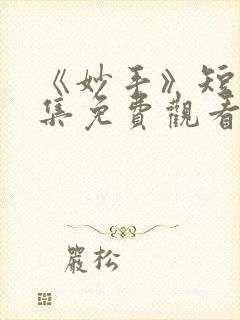 《妙手》短
集免費觀看
嚴松